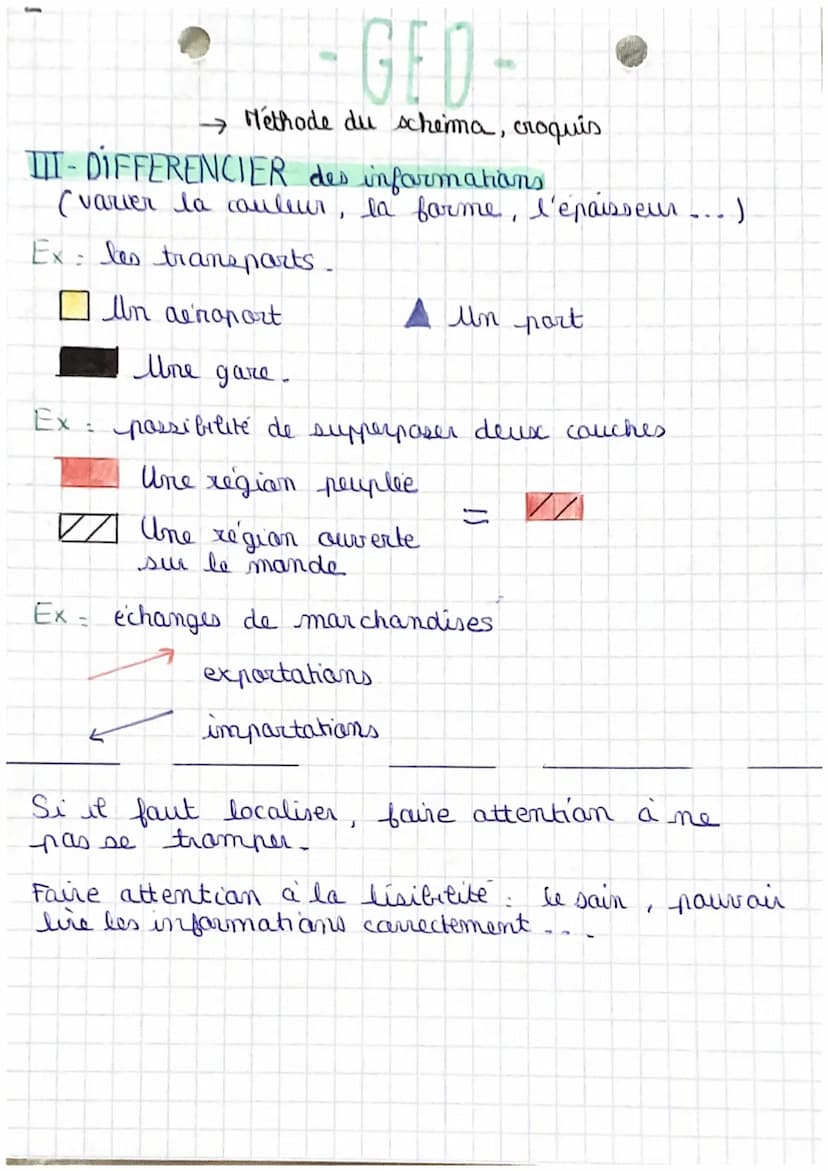 - GEO -
→ Méthode du schéma, croquis
III - DIFFERENCIER des informations
(varier la couleur, la forme, l'épaisseur ...)
Ex : les transports.
Un aéroport
Un port
Une gare.
Ex : possibilité de supperposer deux couches
Une région peuplée
=
Une région ouverte
sur le monde
Ex : échanges de marchandises
exportations
importations
Si il faut localiser, faire attention à ne
pas se tromper.
Faire attention à la lisibilité : le soin, pouvoir
lire les informations correctement ...